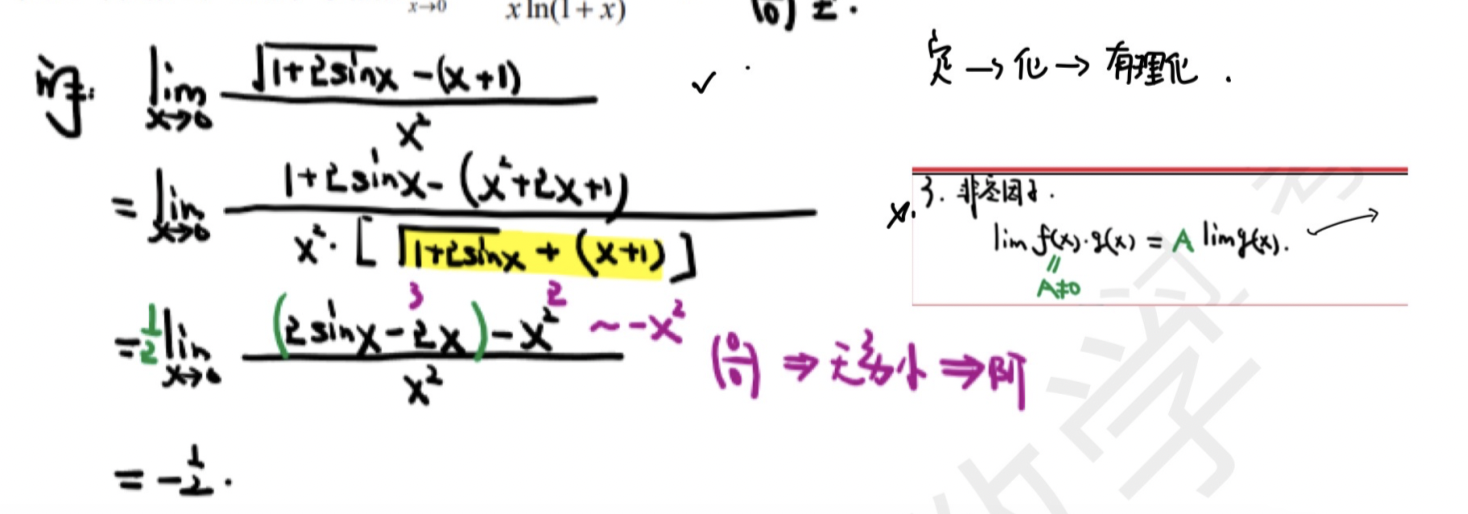 x→0 x ln(1 + x) (0) 型.
定 → 化 → 有理化.
解: lim x→0 (√(1+2sinx) -(x+1)) / x² ✓
= lim x→0 (1+2sinx-(x²+2x+1)) / (x²·[√(1+2sinx) + (x+1)])
= 1/2 lim x→0 ((2sinx-2x)-x²) / x² ~ -x² (0/0) ⇒ 无穷小 ⇒ 阶
3 2
= -1/2.
x. 3. 非零因子.
lim f(x)·g(x) = A lim g(x).
‖
A≠0
数学